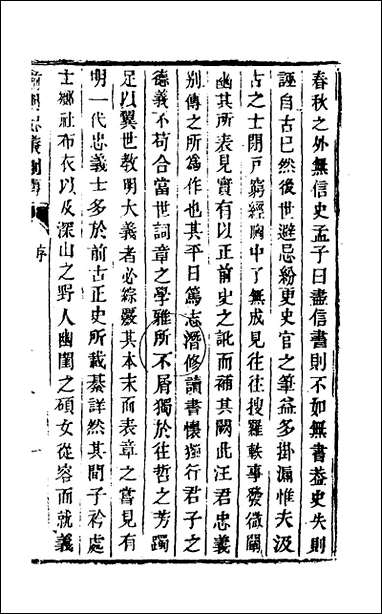 春秋之外無信史孟子曰盡信書則不如無書葢史失則
誣自古已然後世避忌紛更史官之筆益多掛漏惟夫汲
古之士閉戸窮經胸中了無成見往往搜羅軼事發微闡
幽其所表見實有以正前史之訛而補其闕此汪君忠義
别傳之所為作也其平日篤志潛修讀書懷獨行君子之
德義不苟合當世詞章之學雅所不屑獨於往哲之芳躅
足以翼世教明大義者必綜覈其本末而表章之嘗見有
明一代忠義士多於前古正史所載綦詳然其間子衿處
士鄉社布衣以及深山之野人幽閨之碩女從容而就義
忠義别傳
序